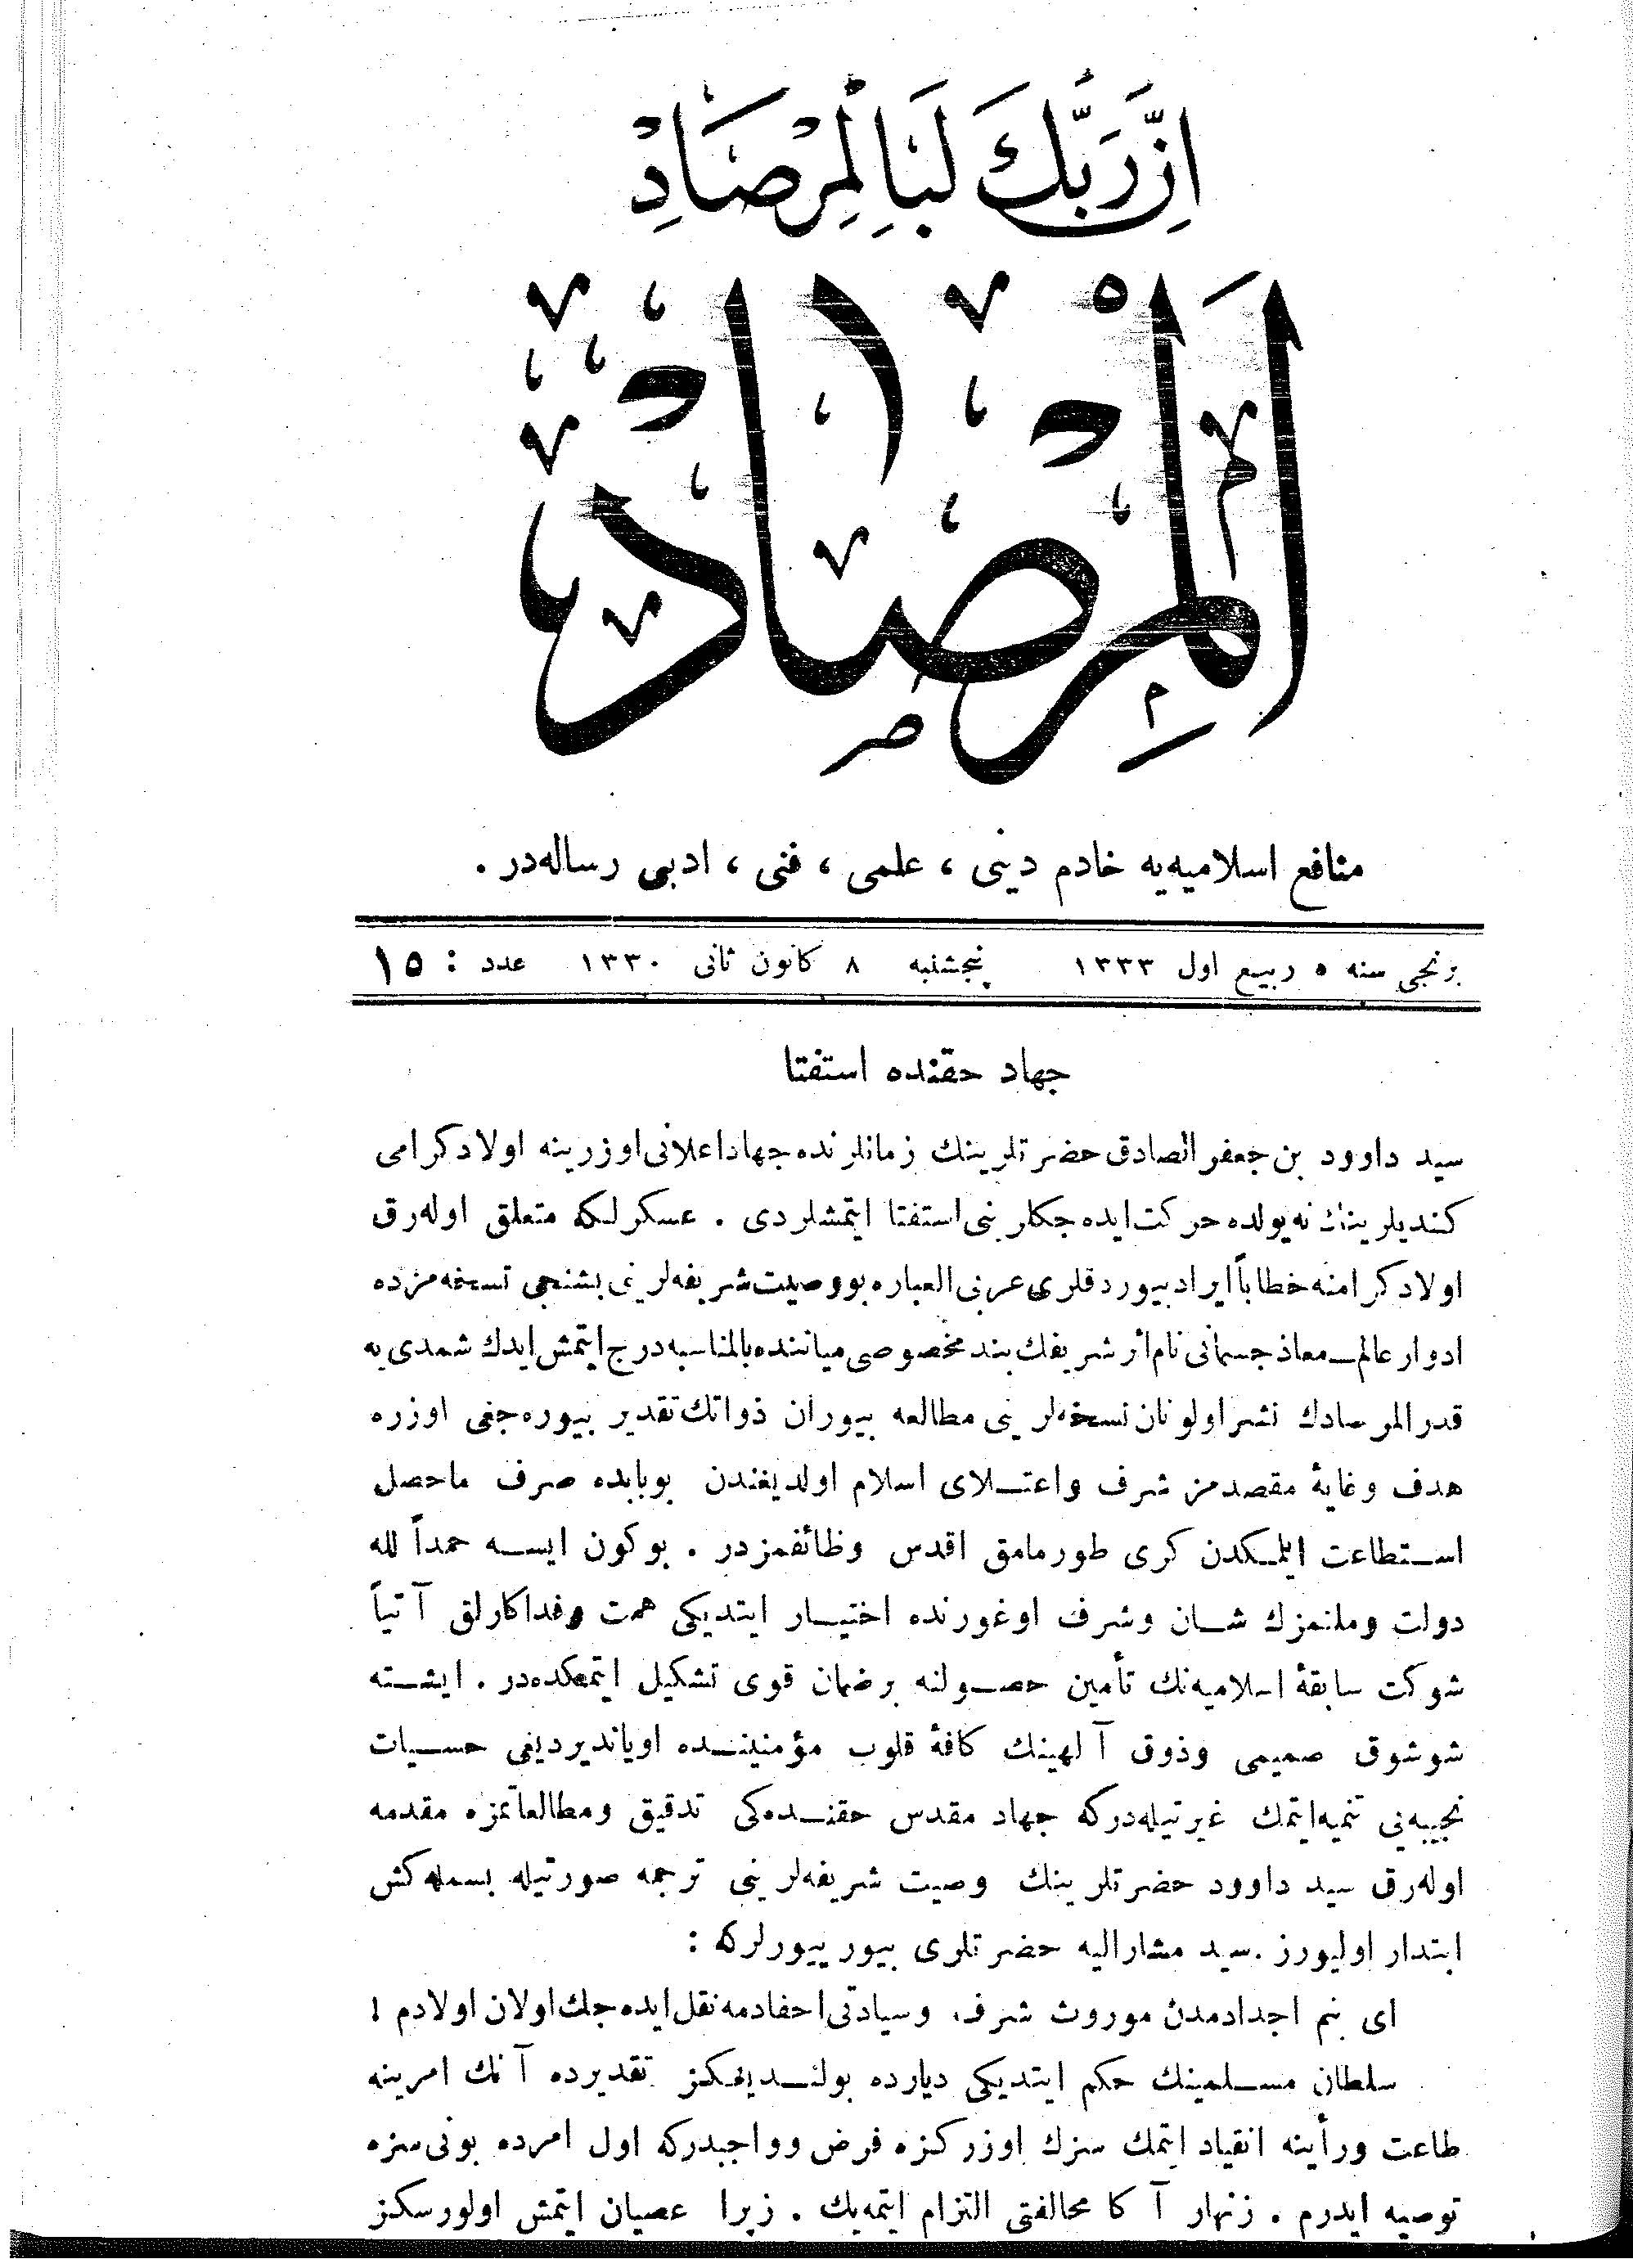 اِنَّ رَبَّكَ لَبِالْمِرْصَادِ
اَلْمِرْصَادْ
منافع اسلاميه‌يه خادم دينى ، علمى ، فنى ، ادبى رساله‌در .
برنجى سنه ٥ ربيع اول ١٣٣٣ پنجشنبه ٨ كانون ثانى ١٣٣٠ عدد : ١٥
جهاد حقنده استفتا
سيد داوود بن جعفر الصادق حضرتلرينك زمانلرنده جهاد اعلانى اوزرينه اولاد كرامى
كنديلرينك نه يولده حركت ايده جكلرينى استفتا ايتمشلردى . عسكرلكه متعلق اوله‌رق
اولاد كرامنه خطاباً ايراد بيوردقلرى عربى العباره بو وصيت شريفه‌لرينى بشنجى نسخه‌مزده
ادوار عالم ــ معاذ جسمانى نام اثر شريفك بند مخصوصى مياننده بالمناسبه درج ايتمش ايدك شمدى يه
قدر المرصادك نشر اولونان نسخه‌لرينى مطالعه بيوران ذواتك تقدير بيوره جغى اوزره
هدف وغايهٔ مقصدمز شرف واعتلاى اسلام اولديغندن بوبابده صرف ماحصل
استطاعت ايلمكدن كرى طورمامق اقدس وظائفمزدر . بوكون ايسه حمداً لله
دولت وملتمزك شان وشرف اوغورنده اختيار ايتديكى همت وفداكارلق آتياً
شوكت سابقهٔ اسلاميه‌نك تأمين حصولنه برضمان قوى تشكيل ايتمكده‌در . ايشته
شوشوق صميمى وذوق آلهينك كافهٔ قلوب مؤمنينده اوياندیرديغى حسيات
نجيبه‌يى تنميه ايتمك غيرتيله‌دركه جهاد مقدس حقنده‌كى تدقيق ومطالعاتمزه مقدمه
اوله‌رق سيد داوود حضرتلرينك وصيت شريفه‌لرينى ترجمه صورتيله بسمله‌كش
ابتدار اوليورز . سيد مشاراليه حضرتلرى بيورييورلركه :
اى بنم اجدادمدن موروث شرف وسيادتى احفادمه نقل ايده جك اولان اولادم !
سلطان مسلمينك حكم ايتديكى ديارده بولنديغكز تقديرده آنك امرينه
طاعت ورأينه انقياد ايتمك سزك اوزركزه فرض وواجبدركه اول امرده بونى سزه
توصيه ايدرم . زنهار آكا مخالفتى التزام ايتمه‌يك . زيرا عصيان ايتمش اولورسكز